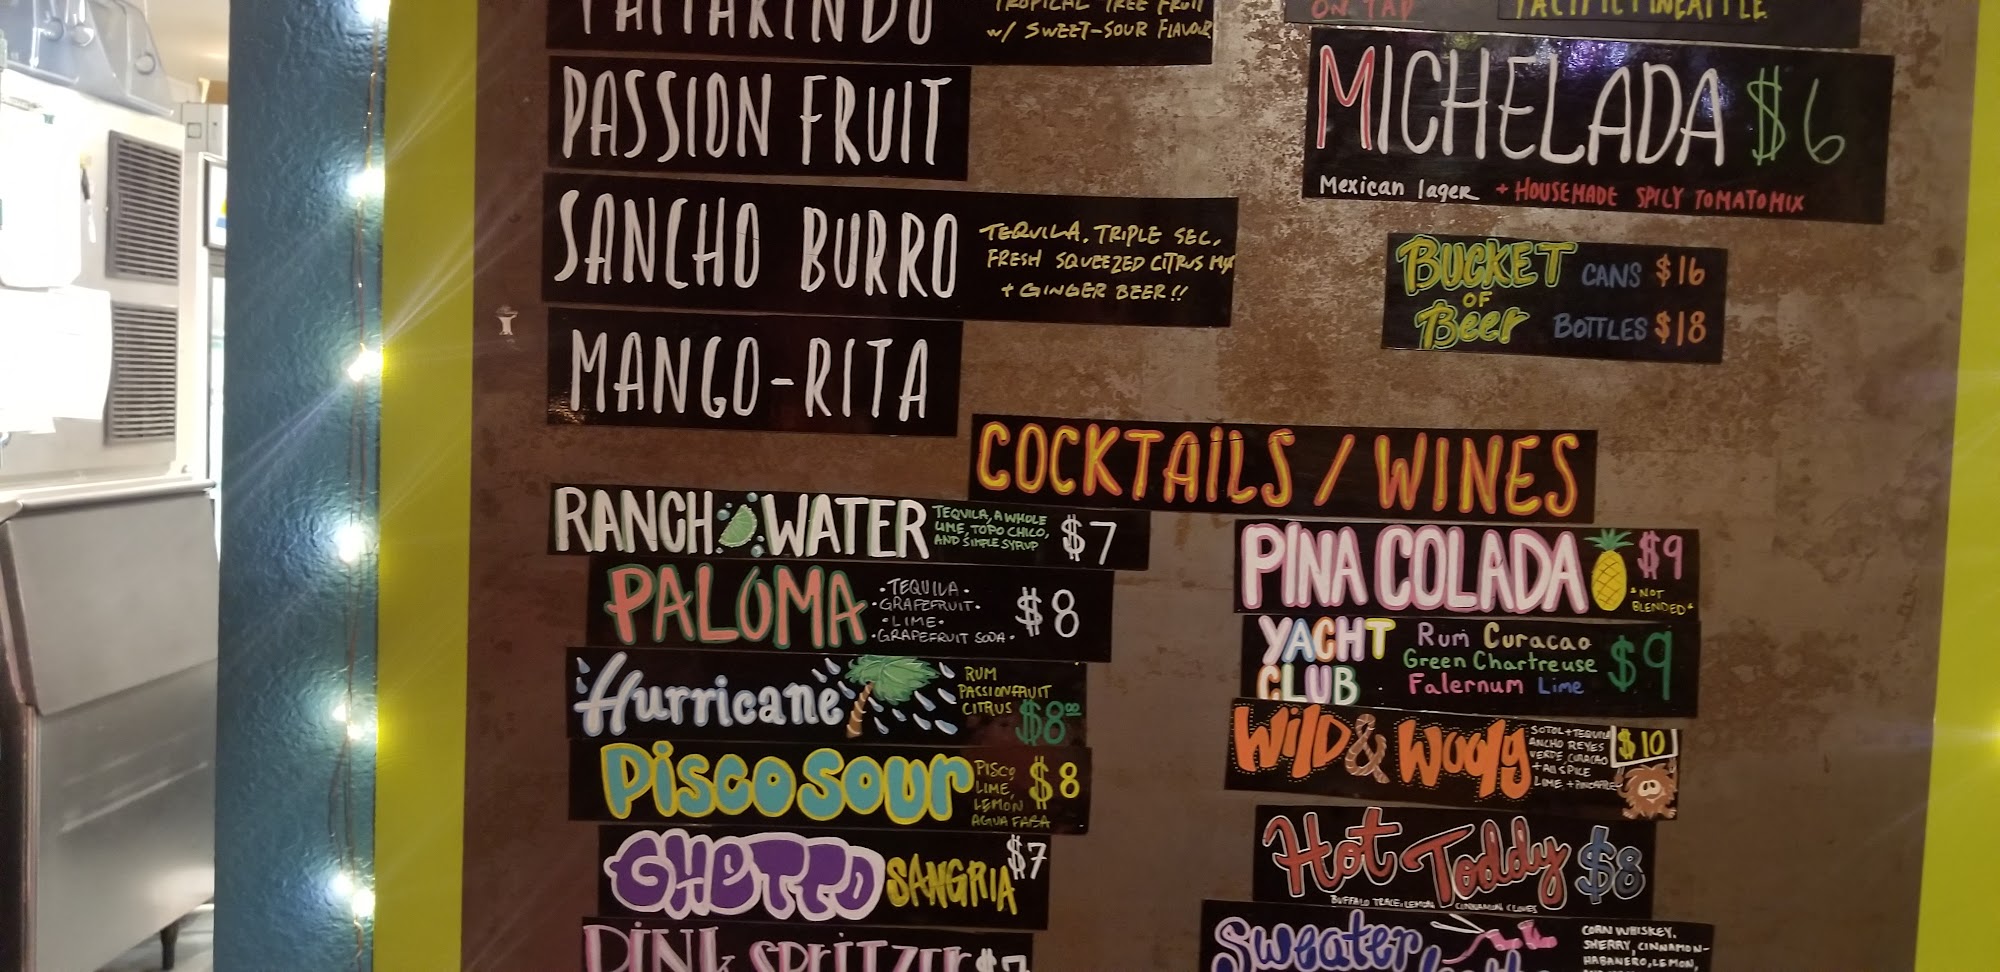 TAMARINDO
TROPICAL TREE FRUIT
w/ SWEET-SOUR FLAVOUR
PASSION FRUIT
SANCHO BURRO
TEQUILA, TRIPLE SEC,
FRESH SQUEEZED CITRUS MIX
+ GINGER BEER!!
MANGO-RITA
ON TAP
PACIFIC PINEAPPLE
MICHELADA $6
Mexican lager + HOUSEMADE SPICY TOMATO MIX
BUCKET OF Beer
CANS $16
BOTTLES $18
COCKTAILS / WINES
RANCH WATER
TEQUILA, A WHOLE
LIME, TOPO CHICO,
AND SIMPLE SYRUP
$7
PALOMA
• TEQUILA •
• GRAPEFRUIT •
• LIME •
• GRAPEFRUIT SODA •
$8
Hurricane
RUM
PASSIONFRUIT
CITRUS
$8.00
Pisco Sour
PISCO,
LIME,
LEMON
AGUA FABA
$8
GHETTO SANGRIA $7
PINK SPRITZER $7
PINA COLADA $9
*NOT
BLENDED*
YACHT
CLUB
Rum Curacao
Green Chartreuse
Falernum Lime
$9
Wild & Wooly
SOTOL + TEQUILA
ANCHO REYES
VERDE, CURACAO
+ ALLSPICE
LIME, + PINEAPPLE
$10
Hot Toddy $8
BUFFALO TRACE, LEMON, CINNAMON CLOVES
Sweater
CORN WHISKEY,
SHERRY, CINNAMON-
HABANERO, LEMON,